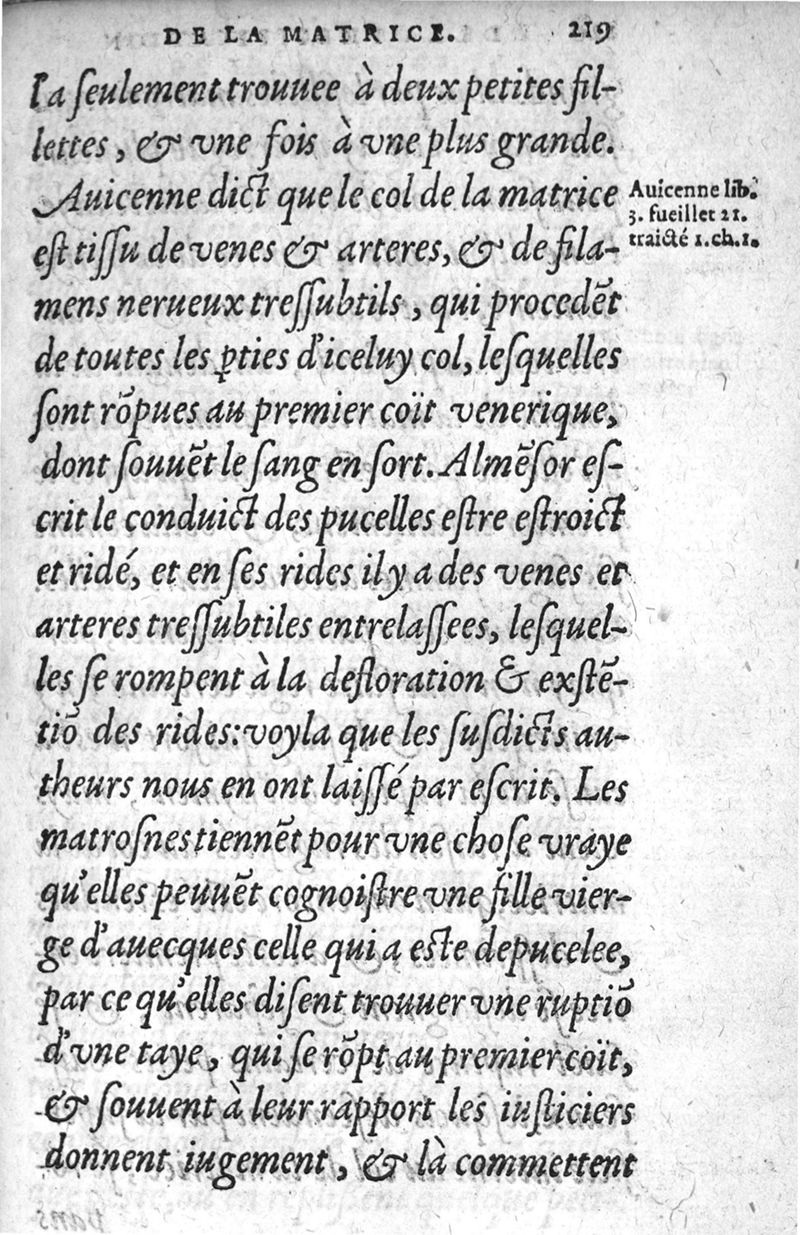 DE LA MATRICE. 219
l'a ſeulement trouuee à deux petites fil-
lettes, & vne fois à vne plus grande.
Auicenne dict que le col de la matrice
eſt tiſſu de venes & arteres, & de fila-
mens nerueux treſſubtils, qui procedẽt
de toutes les ꝑties d'iceluy col, leſquelles
ſont rõpues au premier coït venerique,
dont ſouuẽt le ſang en ſort. Almẽſor eſ-
crit le conduict des pucelles eſtre eſtroict
et ridé, et en ſes rides il y a des venes et
arteres treſſubtiles entrelaſſees, leſquel-
les ſe rompent à la defloration & exſtẽ-
tiõ des rides: voyla que les ſuſdicts au-
theurs nous en ont laiſſé par eſcrit. Les
matroſnes tiennẽt pour vne choſe vraye
qu'elles peuuẽt cognoiſtre vne fille vier-
ge d'auecques celle qui a eſte depucelee,
par ce qu'elles diſent trouuer vne ruptiõ
d'vne taye, qui ſe rõpt au premier coït,
& ſouuent à leur rapport les iuſticiers
donnent iugement, & là commettent
Auicenne lib.
3. fueillet 21.
traicté 1. ch. 1.